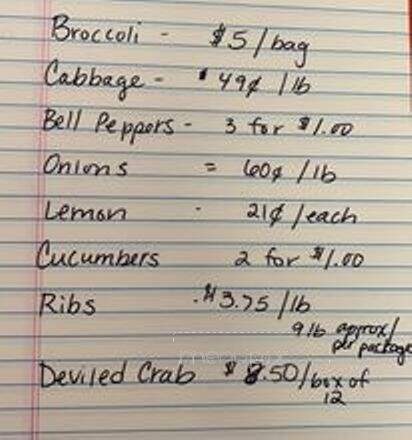 Broccoli - $5/bag
Cabbage - 49¢ /lb
Bell Peppers - 3 for $1.00
Onions = 60¢ /lb
Lemon - 21¢ /each
Cucumbers 2 for $1.00
Ribs - $3.75/lb
9 lb approx/
per package
Deviled Crab $8.50/box of
12